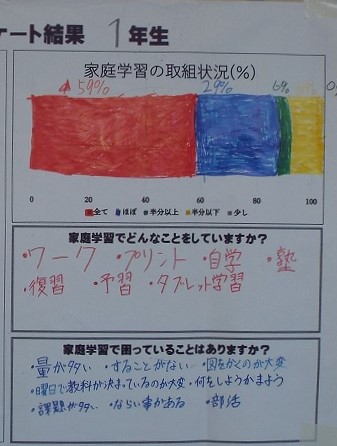 ート結果 1年生
家庭学習の取組状況(%)
59% 29% 6%
0 20 40 60 80 100
全て ほぼ 半分以上 半分以下 少し
家庭学習でどんなことをしていますか?
・ワーク ・プリント ・自学 ・塾
・復習 ・予習 ・タブレット学習
家庭学習で困っていることはありますか?
・量が多い ・することがない ・図をかくのが大変
・曜日で教科が決まっているのが大変 ・何をしようかまよう
・課題が多い ・ならい事がある ・部活